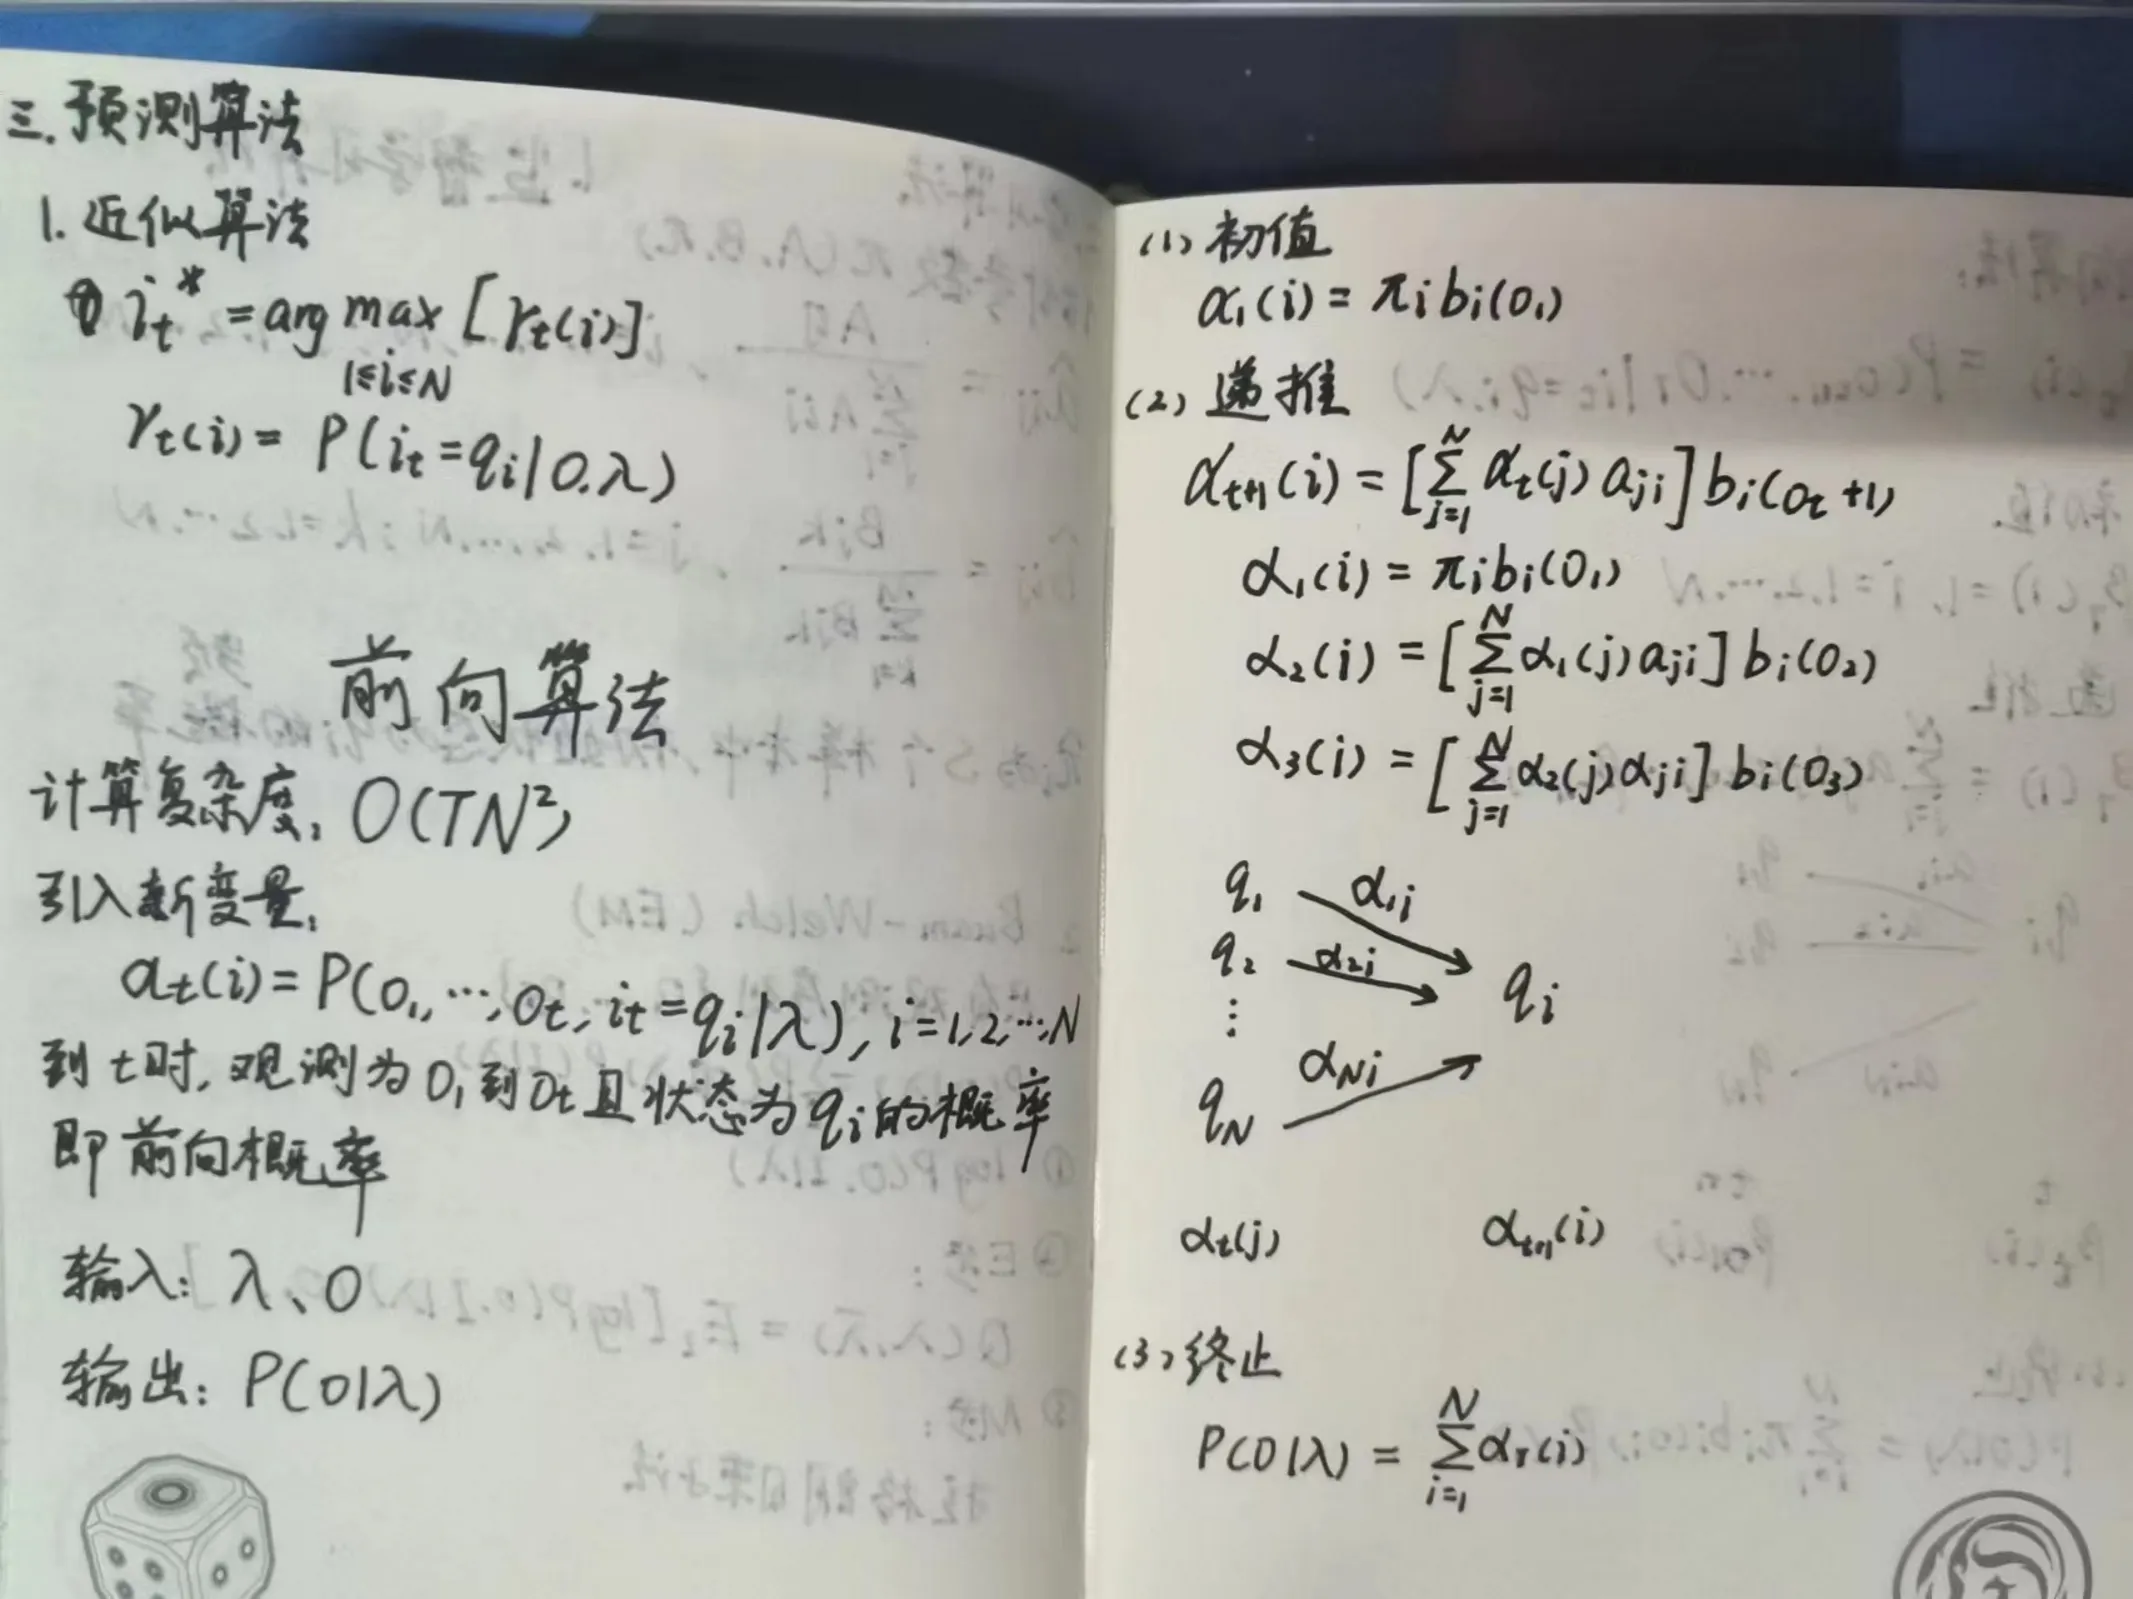 三.预测算法
1.近似算法
① i_t^* = arg max [γ_t(i)]
1≤i≤N
γ_t(i) = P(i_t = q_i | O.λ)
前向算法
计算复杂度: O(TN²)
引入新变量:
α_t(i) = P(O_1, ..., O_t, i_t = q_i | λ), i = 1, 2, ..., N
到t时,观测为O_1到O_t且状态为q_i的概率
即前向概率
输入: λ、O
输出: P(O|λ)
(1) 初值
α_1(i) = π_i b_i(O_1)
(2) 递推
α_{t+1}(i) = [∑_{j=1}^{N} α_t(j) a_{ji}] b_i(O_t+1)
α_1(i) = π_i b_i(O_1)
α_2(i) = [∑_{j=1}^{N} α_1(j) a_{ji}] b_i(O_2)
α_3(i) = [∑_{j=1}^{N} α_2(j) α_{ji}] b_i(O_3)
q_1 α_{1i}
q_2 α_{2i} q_i
⋮
q_N α_{Ni}
α_t(j) α_{t+1}(i)
(3) 终止
P(O|λ) = ∑_{i=1}^{N} α_T(i)